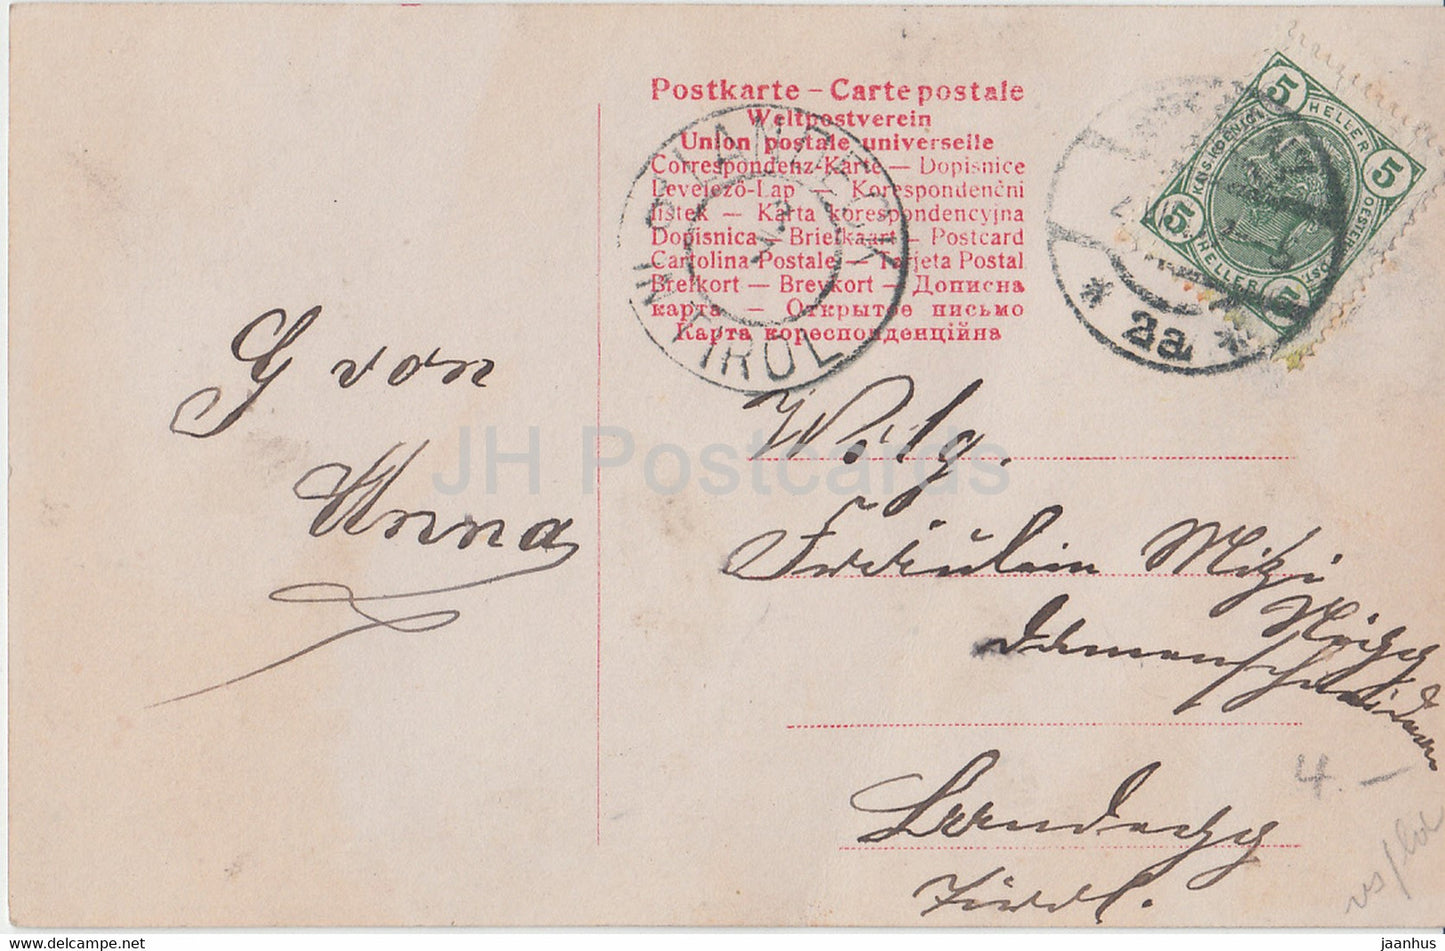 Postkarte – Carte postale
Weltpostverein
Union postale universelle
Correspondenz-Karte — Dopisnice
Levelező-Lap — Korespondenční
listek — Karta korespondencyjna
Dopisnica — Briefkaart — Postcard
Cartolina Postale — Tarjeta Postal
Brefkort — Brevkort — Дописна
карта — Открытое письмо
Карта кореспонденційна
LANDECK
IN TIROL
5 HELLER 5
KAIS. KOENIGL. OESTERR.
5 HELLER 5
* 2a *
G von
Anna
Wolg.
Fräulein Mizi
Damenschneiderin
Landegg
Tirol.
4.–
vs/
JH Postcards
www.hippostcard.com/store/jh-postcards
jaanhus